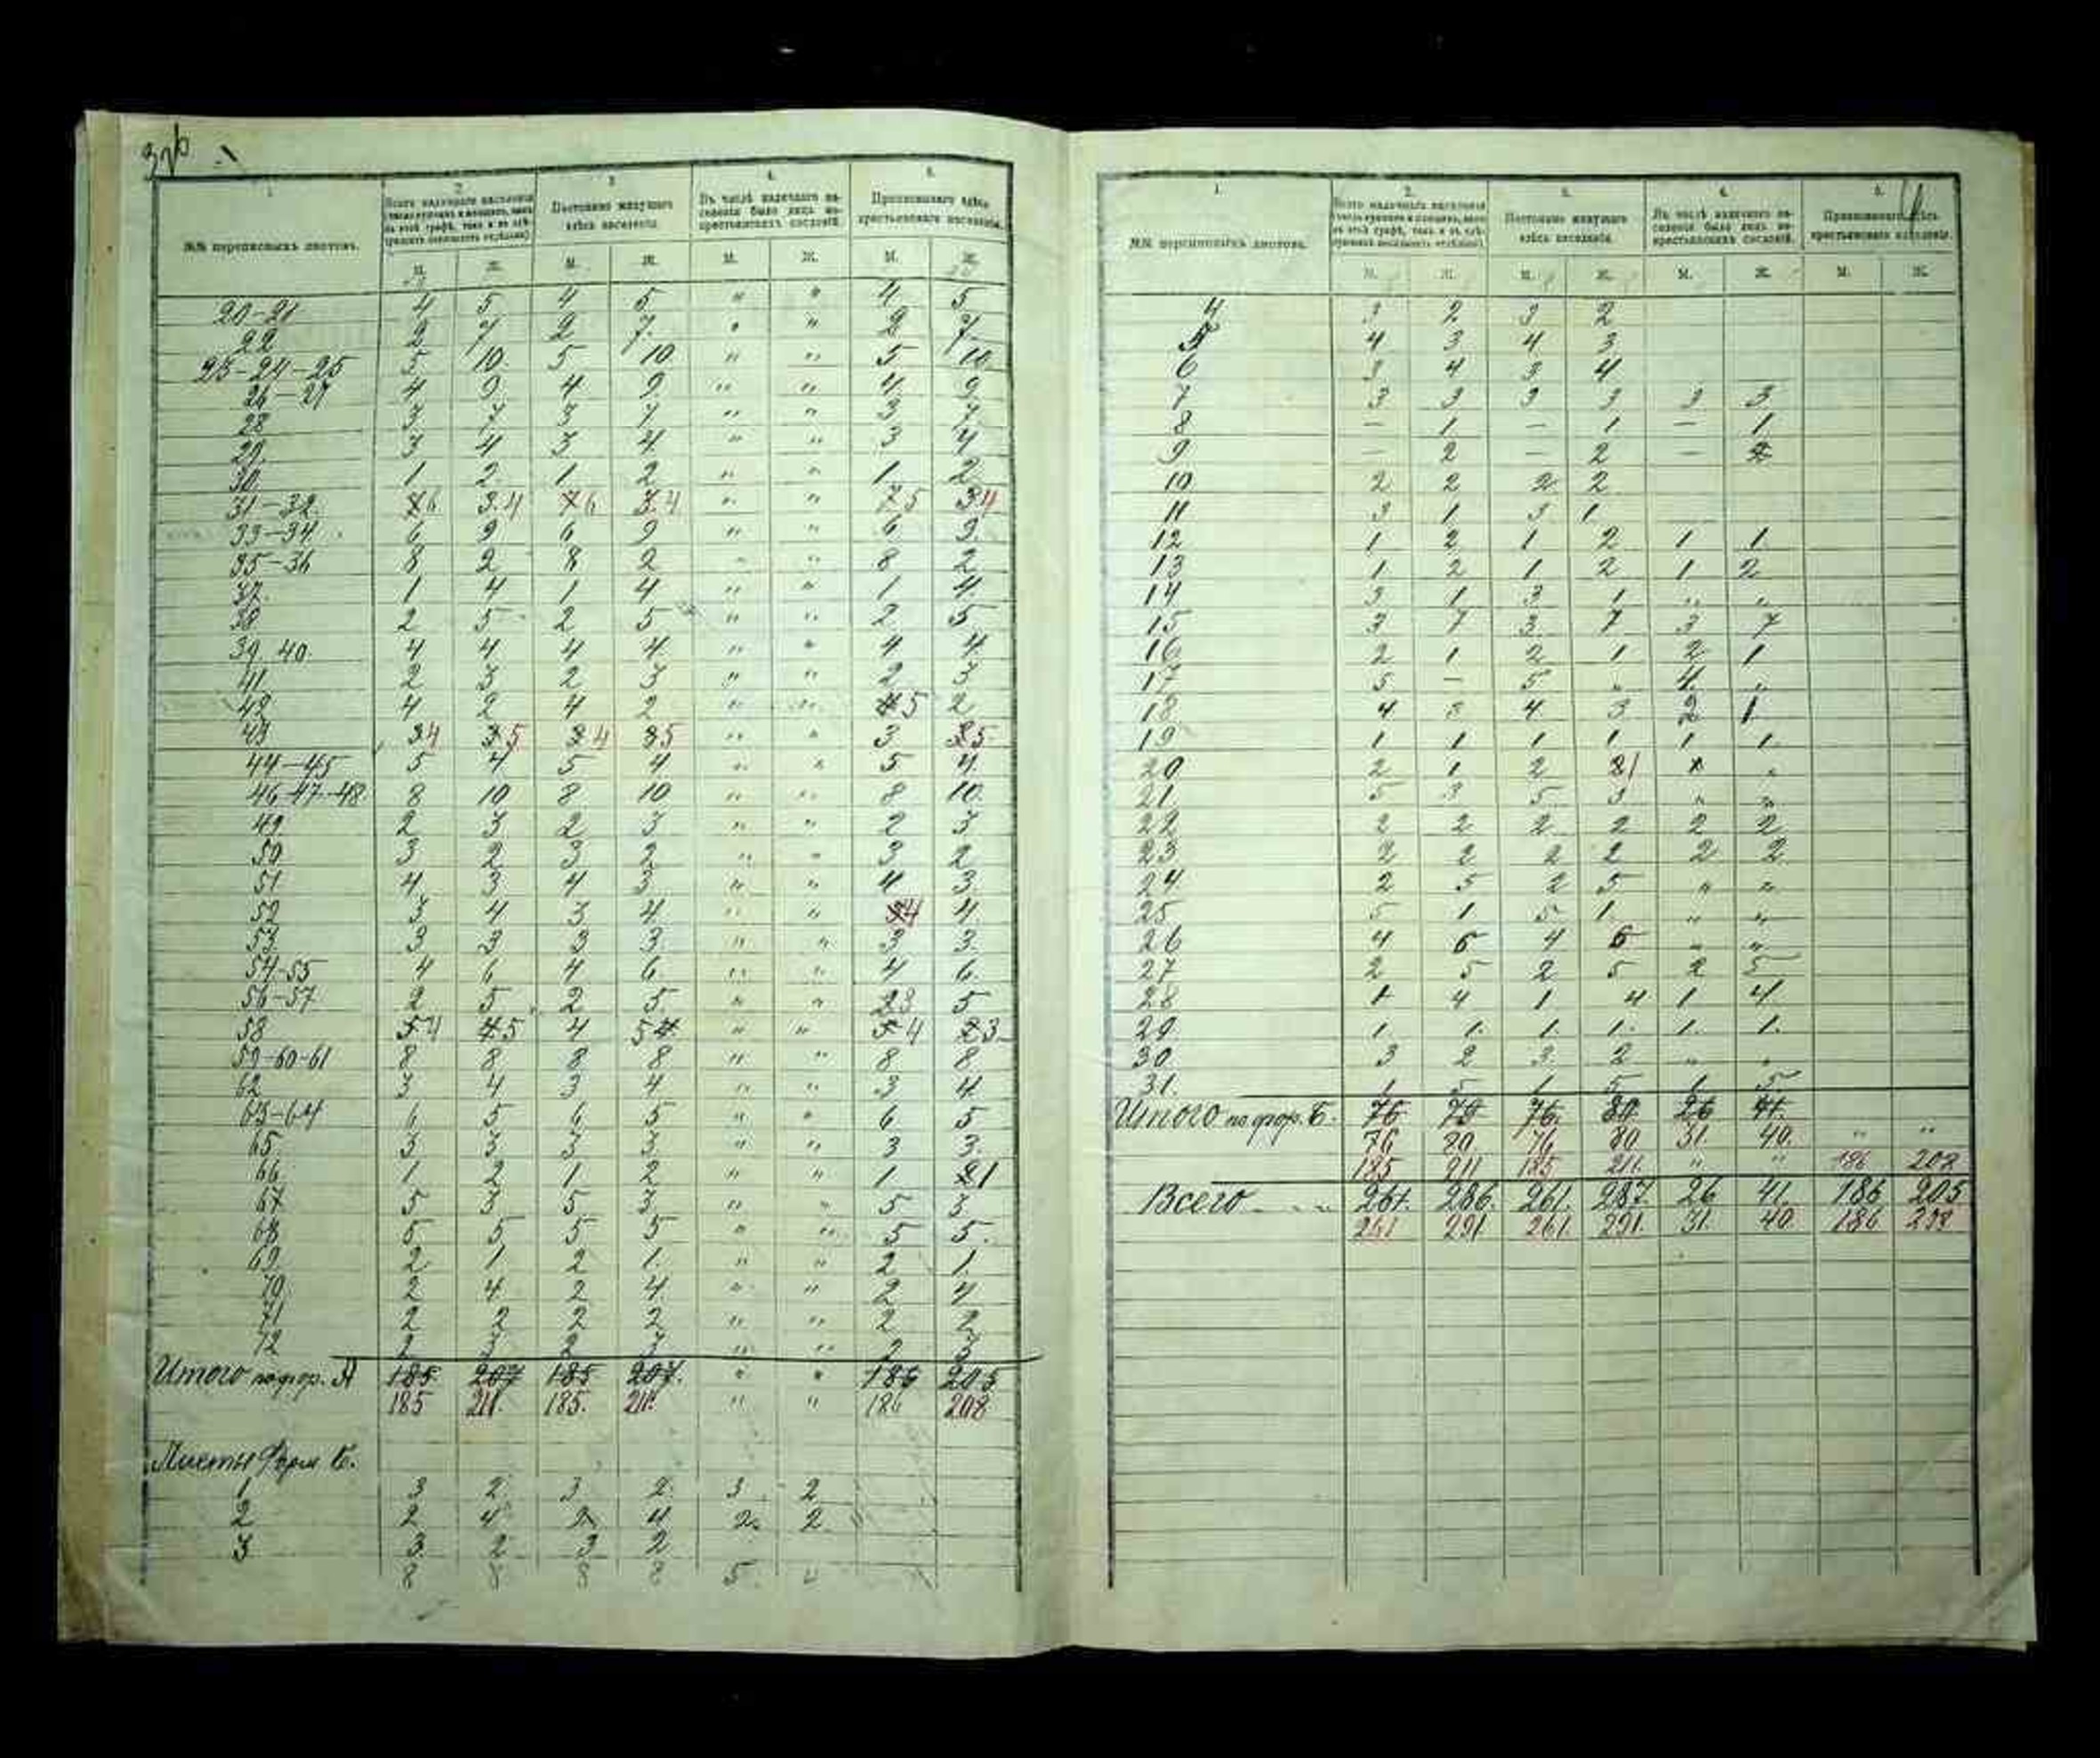 1. 2. 3. 4. 5.
№№ переписныхъ листовъ. Всего наличнаго населенія Постоянно живущаго здѣсь населенія. Въ числѣ наличнаго населенія было лицъ некрестьянскихъ сословій. Приписаннаго здѣсь крестьянскаго населенія.
М. Ж. М. Ж. М. Ж. М. Ж.
20-21 4 5 4 5 " " 4 5
22 2 7 2 7. " " 2 7.
23-24-25 5 10. 5 10 " " 5 10
26-27 4 9 4 9. " " 4. 9
28 3 7 3 7 " " 3 7
29. 3 4 3 4. " " 3 4
30. 1 2 1 2 " " 1 2
31-32. 7 6 3. 4 7 6 3. 4 " " 7 5 3 4
33-34. 6 9 6 9 " " 6 9.
35-36 8 2 8 2 " " 8 2
37. 1 4 1 4 " " 1 4.
38 2 5 2 5 " " 2 5
39. 40. 4 4 4 4. " " 4 4.
41 2 3 2 3 " " 2 3
42 4 2 4 2 " " 4 5 2
43 3 4 3 5 3 4 3 5 " " 3 3 5
44-45 5 4 5 4 " " 5 4.
46-47-48. 8 10 8 10 " " 8 10.
49. 2 3 2 3 " " 2 3
50. 3 2 3 2 " " 3 2
51 4 3 4 3 " " 4 3.
52 3 4 3 4. " " 3 4 4.
53 3 3 3 3. " " 3 3.
54-55 4 6 4 6. " " 4 6.
56-57 2 5 2 5 " " 2 3 5
58 5 4 4 5 4 5 4 " " 5 4 2 3
59-60-61 8 8 8 8 " " 8 8
62 3 4 3 4 " " 3 4.
63-64 6 5 6 5 " " 6 5
65. 3 3 3 3. " " 3 3.
66 1 2 1 2 " " 1 2 1
67 5 3 5 3 " " 5 3
68 5 5 5 5 " " 5 5.
69. 2 1 2 1. " " 2 1.
70 2 4 2 4. " " 2 4
71 2 2 2 2 " " 2 2
72 2 3 2 3 " " 2 3
Итого по фор. А 185 207 185 207. " " 186 205
185 211. 185. 211. " " 186 208
Листы Форм Б.
1 3 2. 3 2. 3 2
2 2 4 2 4 2. 2
3 3 2 3 2
8 8 8 8 5
1. 2. 3. 4. 5.
№№ переписныхъ листовъ. Всего наличнаго населенія Постоянно живущаго здѣсь населенія. Въ числѣ наличнаго населенія было лицъ некрестьянскихъ сословій. Приписаннаго здѣсь крестьянскаго населенія.
М. Ж. М. Ж. М. Ж. М. Ж.
4 3 2 3 2
5 4 3 4 3
6 3 4 3 4
7 3 3 3 3 3 3
8 – 1 – 1 – 1
9 – 2 – 2 – 2
10 2 2 2 2
11 3 1 3 1
12 1 2 1 2 1 1
13 1 2 1 2 1 2
14 3 1 3 1 " "
15 3 7 3 7 3 7
16 2 1 2 1 2 1
17 5 – 5 " 4. "
18 4 3 4 3 2 1
19 1 1 1 1 1 1
20 2 1 2 2 1 " "
21 5 3 5 3 " "
22 2 2 2 2 2 2
23 2 2 2 2 2 2
24 2 5 2 5 " "
25 5 1 5 1. " "
26 4 6 4 6 " "
27 2 5 2 5 2 5
28 1 4 1 4 1 4
29. 1. 1. 1. 1. 1. 1.
30. 3 2 3. 2 " "
31. 1 5 1 5 1 5
Итого по фор. Б. 76 79 76. 80. 26 41.
76 80 76 80. 31. 40. " "
185 211 185 211. " " 186 208
Всего 261. 286. 261. 287. 26 41. 186 205
261 291. 261. 291. 31. 40. 186 208